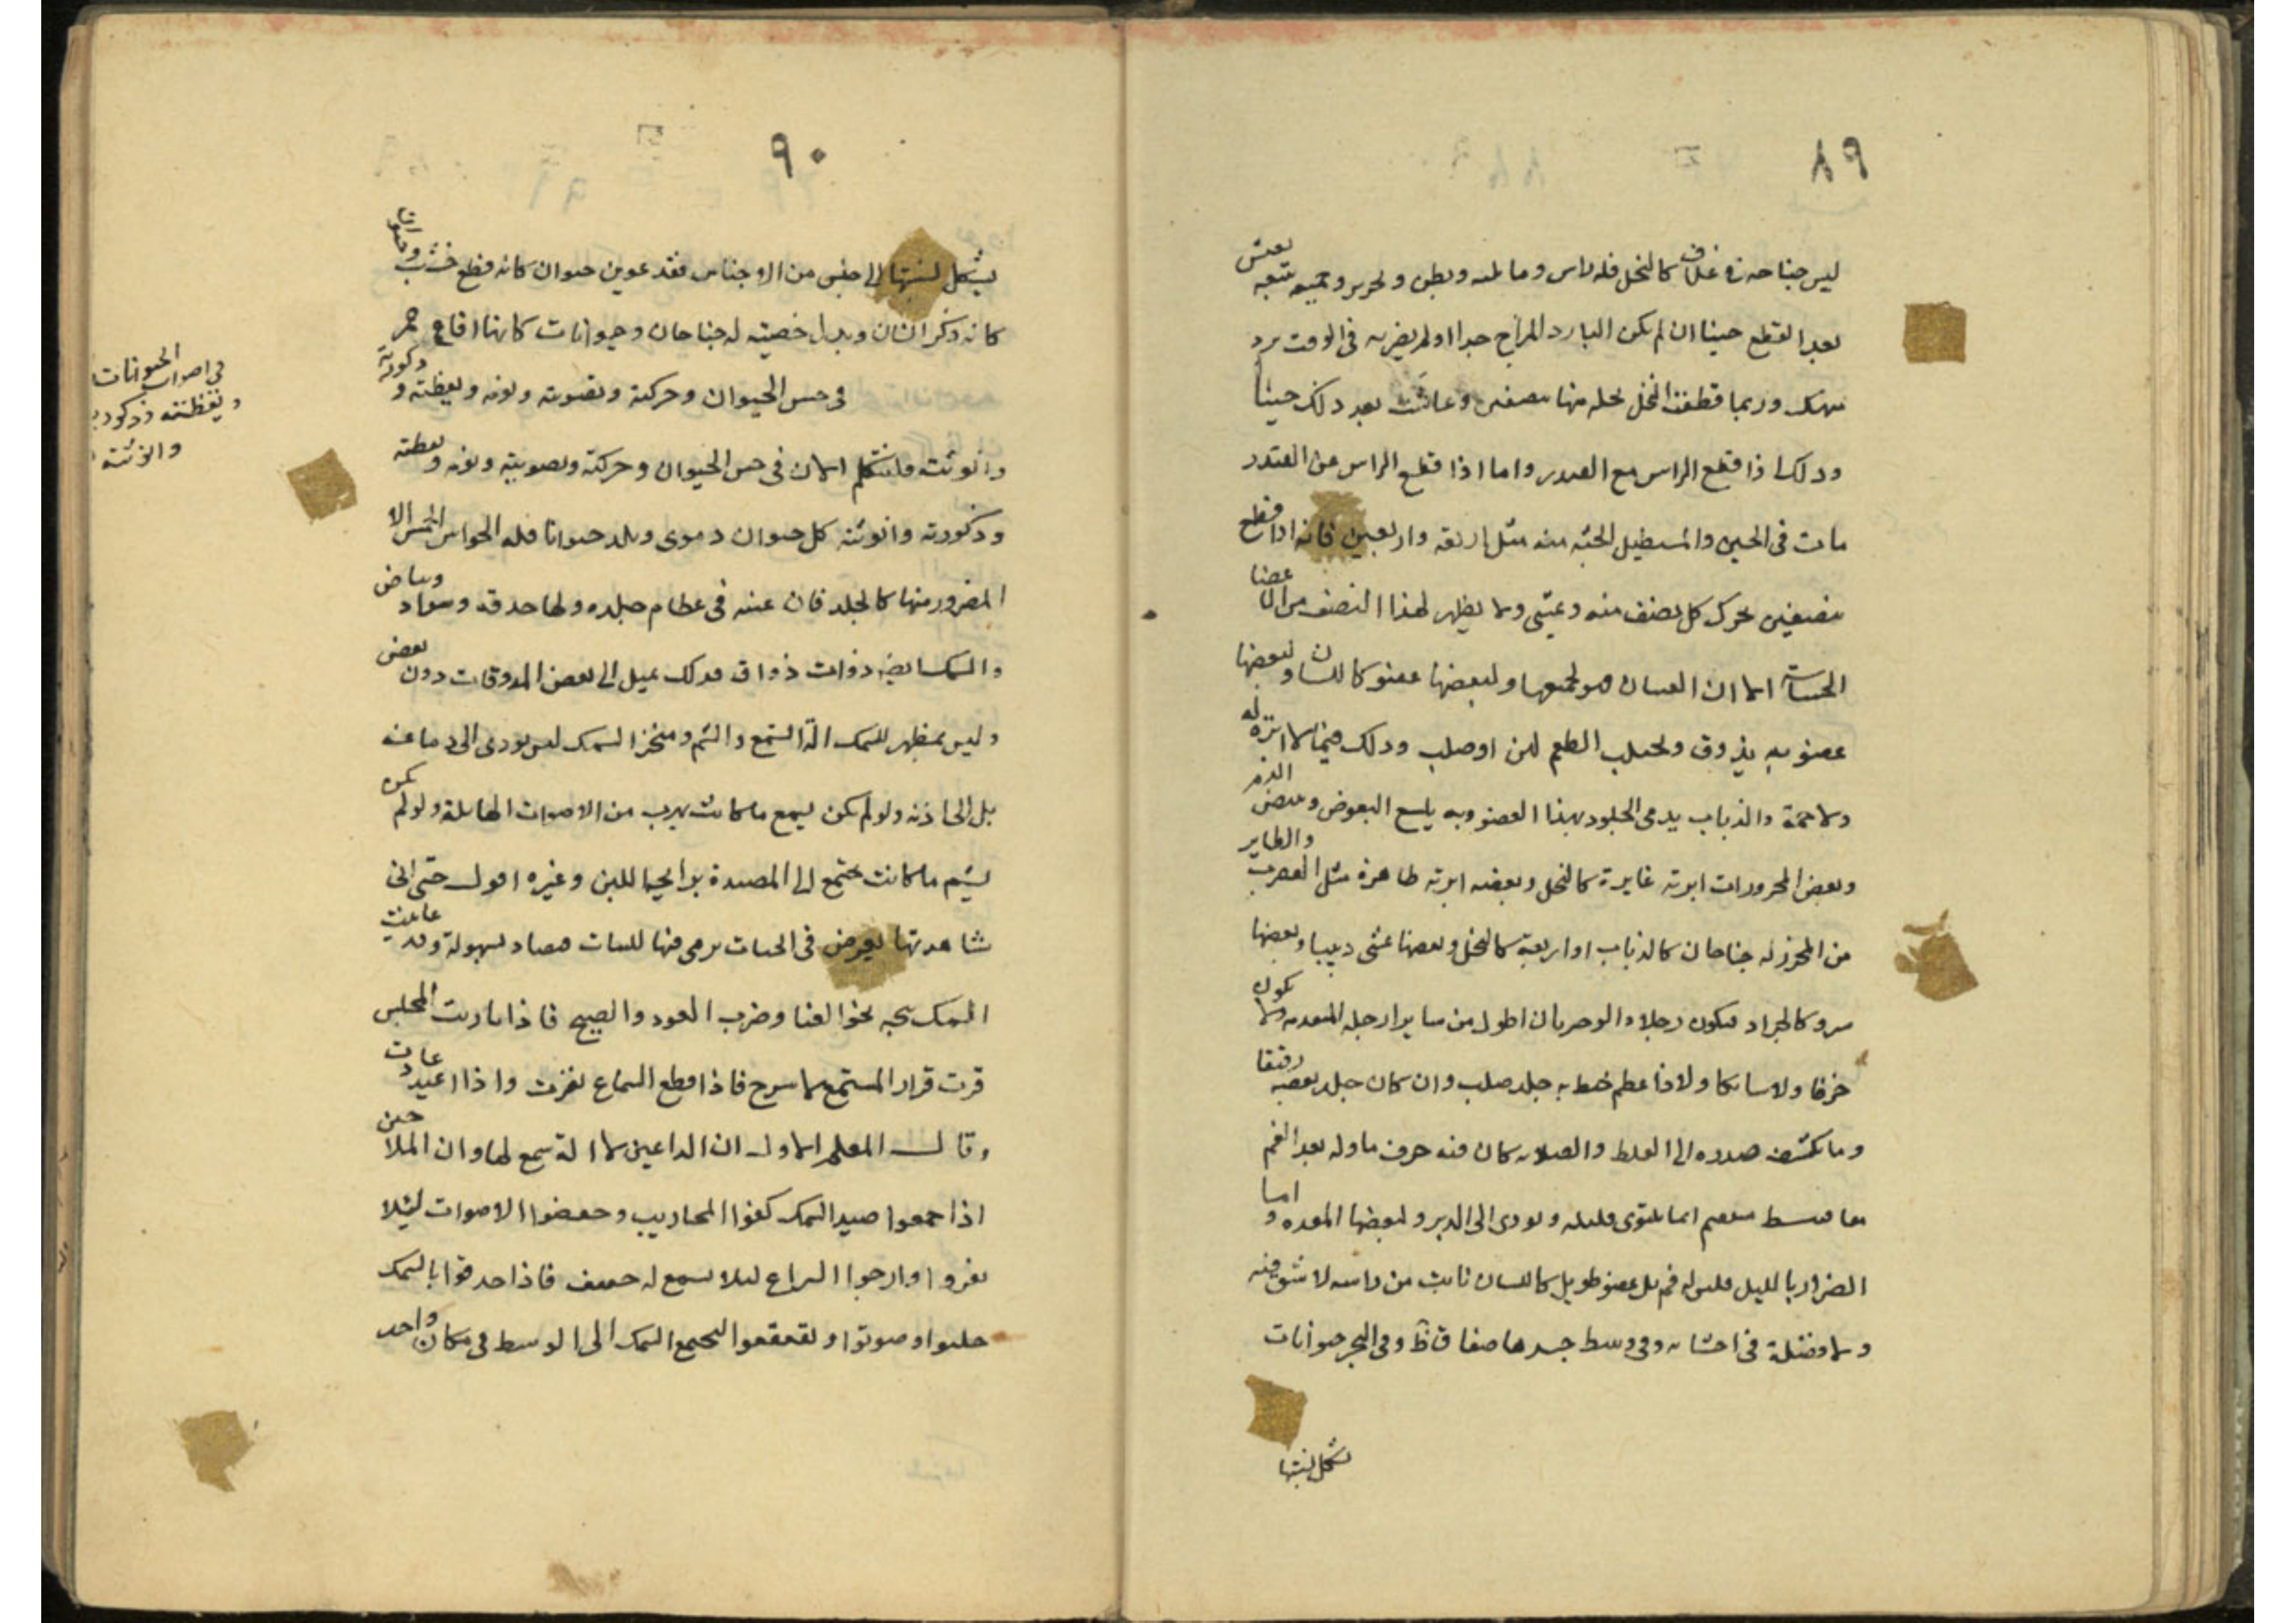 ٨٩
ليس جناحه في غلاف كالنحل فله راس وما يليه وبطن وتحرير وجميعه يعيش
بعد القطع حينا ان لم يكن البارد المزاج جدا اولم يضربه في الوقت برد
وربما قطعت النحل نحلة منها بنصفين وعاشت بعد ذلك حينا
وذلك اذا قطع الراس مع الصدر واما اذا قطع الراس عن الصدر
مات في الحين والمستطيل الجثة منه مثل اربعة واربعين فانه اذا قطع
بنصفين تحرك كل نصف منه ومشى ولا يظهر لهذا النصف من الاعضا
الحساسة الا ان العينان هو لجميعها ولبعضها عضو كاللسان ولبعضها
عضو به يذوق ويجلب الطعم لين او صلب وذلك فيما لا ابرة له
ولا حمة والذباب يدمي الجلود بهذا العضو وبه يلسع البعوض ويمص الدم
وبعض المحزوزات ابرته غايرة كالنحل وبعضه ابرته ظاهرة مثل العقرب والطاير
من المحزز له جناحان كالذباب او اربعة كالنحل وبعضها يمشي دبيبا وبعضها
ينزو كالجراد فيكون رجلاه الموخرتان اطول من ساير ارجله المتقدمة ولا يكون
خزفا ولا سابكا ولا ذا عظم خط به جلد صلب وان كان جلد بعضه رقيقا
وما يكشف صدره الى الغلظ والصلابة كان فيه حرف ما وله بعد الفم
معا مستقيم اما يلتوي قليلا ويودي الى الدبر ولبعضها المعدة واما
الضرار بالليل فليس له فم بل عضو طويل كاللسان نابت من راسه لا شق فيه
ولا فضلة في احشايه وفي وسط جسدها صفاقات وفي البحر حيوانات
يشكل نسبتها
٩٠
يشكل نسبتها الى جنس من الاجناس فقد عوين حيوان كانه قطع خشب وحيوان
كانه ذكر انسان وبدل خصيته له جناحان وحيوانات كانها اقماع حمر
في حس الحيوان وحركته وتصويته ونومه ويقظته وذكورته
وانوثته فلنتكلم الان في حس الحيوان وحركته وتصويته ونومه ويقظته
وذكورته وانوثته كل حيوان دموي ويلد حيوانا فله الحواس الخمس الا
المضرور منها كالخلد فان عينيه في عظام جلده ولها حدقة وسواد وبياض
والسمك ايضا ذوات ذواق فذلك يميل الى بعض المذوقات دون بعض
وليس يظهر للسمك الة السمع والشم ومنخر السمك ليس يودي الى دماغه
بل الى اذنه ولو لم يكن يسمع ما كانت تهرب من الاصوات الهايلة ولو لم يكن
يشم ما كانت تجتمع الى المصيدة برايحة اللبن وغيره اقول حتى اني
شاهدتها يعرض في الحيات يرمى منها للنبات فصاد بسهولة وقد عاينت
السمك يجيه نحو الغنا وضرب العود والصبيح فاذا بارت المجلس
قرت قرار المستمع لا تبرح فاذا قطع السماع نفرت واذا اعيد عادت
وقال المعلم الاول ان الداعين لا الة سمع لها وان الملاحين
اذا جمعوا صيد السمك كفوا المجاديف وخفضوا الاصوات ليلا
ينفروا وارجوا الشراع ليلا يسمع له حفيف فاذا احدقوا بالسمك
جلبوا وصوتوا وتقعقعوا ليجتمع السمك الى الوسط في مكان واحد
في اصوات الحيوانات
ويقظته وذكورته
وانوثته